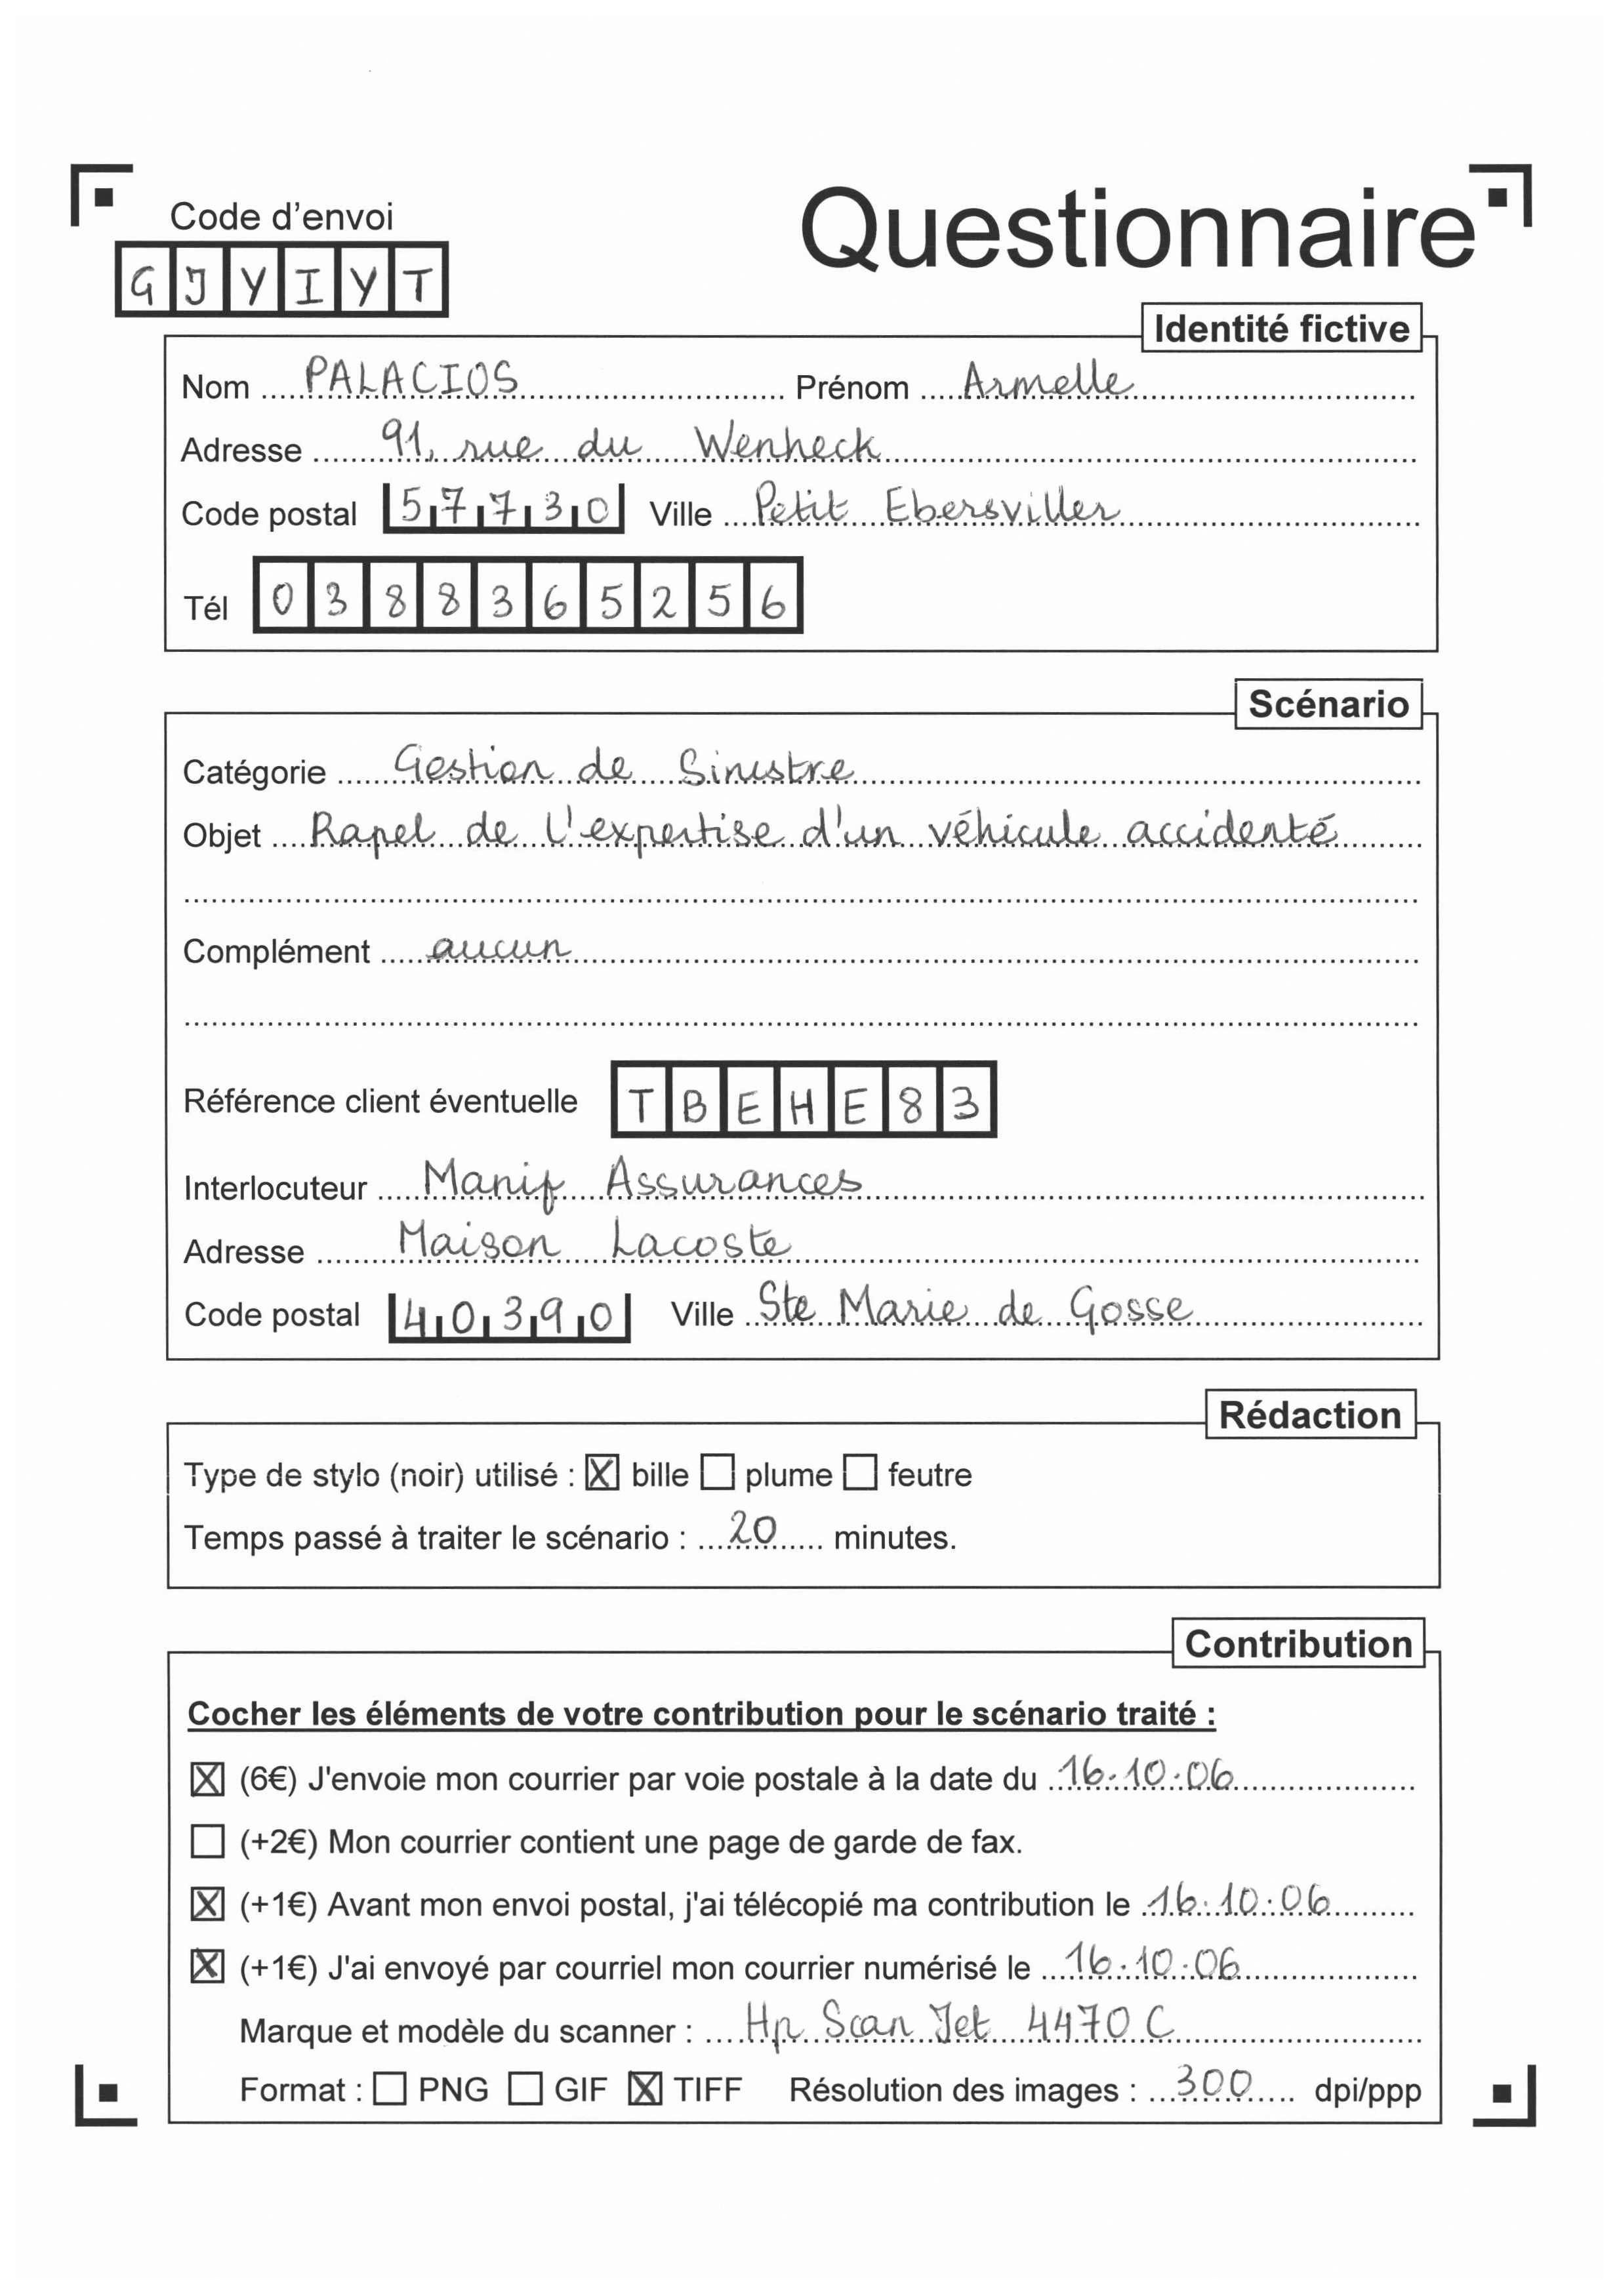 Code d'envoi
Questionnaire
GJYIYT
Identité fictive
Nom PALACIOS Prénom Armelle
Adresse 91, rue du Wenheck
Code postal 57730 Ville Petit Ebersviller
Tél 0388365256
Scénario
Catégorie Gestion de Sinistre
Objet Rapel de l'expertise d'un véhicule accidenté
Complément aucun
Référence client éventuelle TBEHE83
Interlocuteur Manif Assurances
Adresse Maison Lacoste
Code postal 40390 Ville Ste Marie de Gosse
Rédaction
Type de stylo (noir) utilisé : ☒ bille ☐ plume ☐ feutre
Temps passé à traiter le scénario : 20 minutes.
Contribution
Cocher les éléments de votre contribution pour le scénario traité :
☒ (6€) J'envoie mon courrier par voie postale à la date du 16.10.06
☐ (+2€) Mon courrier contient une page de garde de fax.
☒ (+1€) Avant mon envoi postal, j'ai télécopié ma contribution le 16.10.06
☒ (+1€) J'ai envoyé par courriel mon courrier numérisé le 16.10.06
Marque et modèle du scanner : Hp Scan Jet 4470 C
Format : ☐ PNG ☐ GIF ☒ TIFF Résolution des images : 300 dpi/ppp